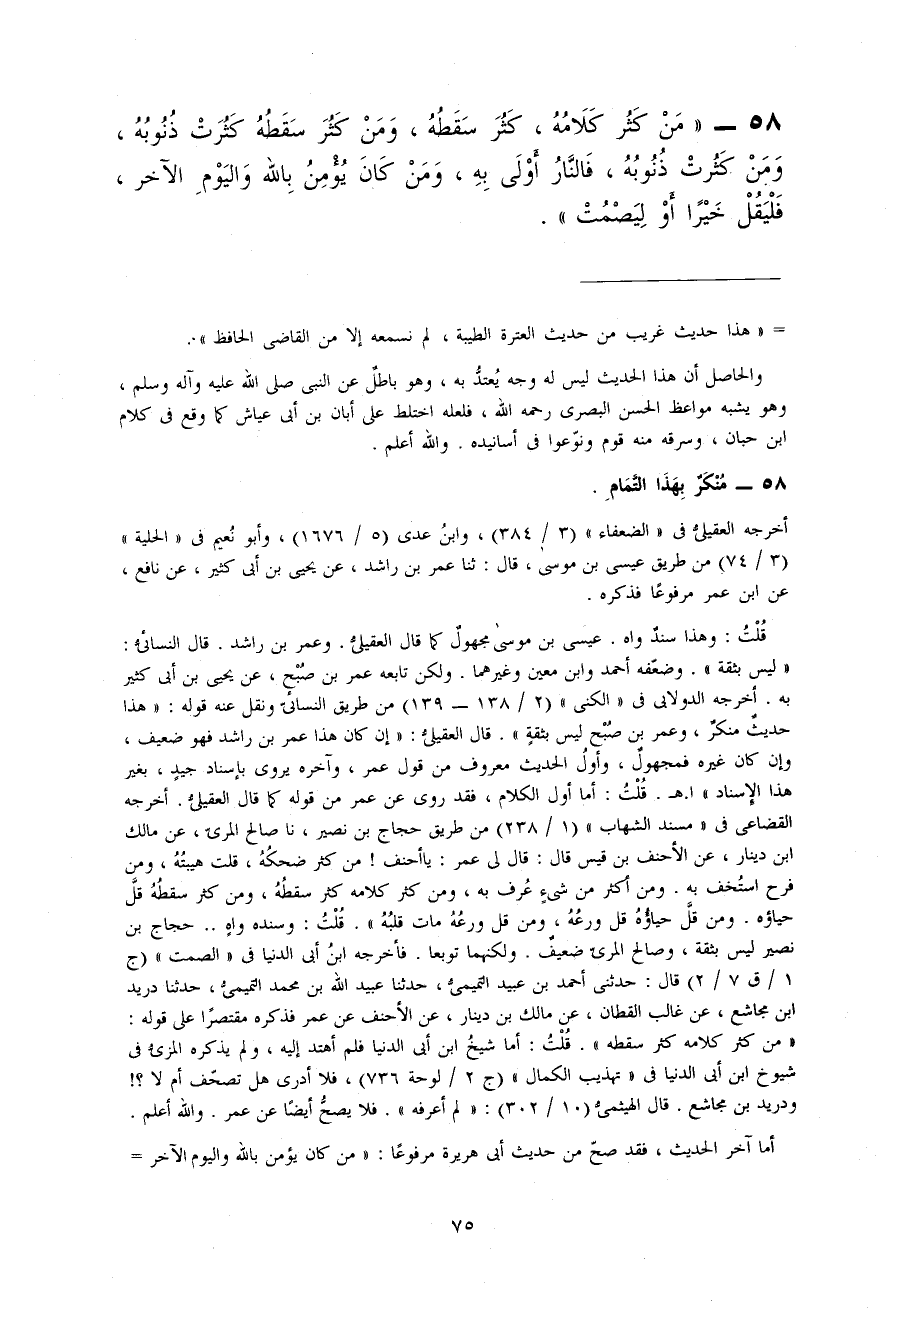 ٥٨ ــ « مَنْ كَثُر كَلَامُهُ ، كَثُرَ سَقَطُهُ ، وَمَنْ كَثُرَ سَقَطُهُ كَثُرَتْ ذُنُوبُهُ ،
وَمَنْ كَثُرتْ ذُنُوبُهُ ، فَالنَّارُ أَوْلَى بِهِ ، وَمَنْ كَانَ يُؤْمِنُ بِالله وَاليَوْمِ الآخر ،
فَلْيَقُلْ خَيْرًا أَوْ لِيَصْمُتْ » .
= « هذا حديث غريب من حديث العترة الطيبة ، لم نسمعه إلا من القاضى الحافظ » .
والحاصل أن هذا الحديث ليس له وجه يُعتدُّ به ، وهو باطلٌ عن النبى صلى الله عليه وآله وسلم ،
وهو يشبه مواعظ الحسن البصرى رحمه الله ، فلعله اختلط على أبان بن أبى عياش كما وقع فى كلام
ابن حبان ، وسرقه منه قوم ونوّعوا فى أسانيده . والله أعلم .
٥٨ ــ مُنْكَرٌ بِهَذَا التَّمَامِ .
أخرجه العقيلىُّ فى « الضعفاء » (٣ / ٣٨٤) ، وابنُ عدى (٥ / ١٦٧٦) ، وأبو نُعيم فى « الحلية »
(٣ / ٧٤) من طريق عيسى بن موسىٰ ، قال : ثنا عمر بن راشد ، عن يحيى بن أبى كثير ، عن نافع ،
عن ابن عمر مرفوعًا فذكره .
قُلْتُ : وهذا سندٌ واه . عيسى بن موسىٰ مجهولٌ كما قال العقيلىُّ . وعمر بن راشد . قال النسائىُّ :
« ليس بثقة » . وضعّفه أحمد وابن معين وغيرهما . ولكن تابعه عمر بن صُبْح ، عن يحيى بن أبى كثير
به . أخرجه الدولابى فى « الكنى » (٢ / ١٣٨ ــ ١٣٩) من طريق النسائىّ ونقل عنه قوله : « هذا
حديثٌ منكرٌ ، وعمر بن صُبْح ليس بثقةٍ » . قال العقيلىُّ : « إن كان هذا عمر بن راشد فهو ضعيف ،
وإن كان غيره فمجهولٌ ، وأولُ الحديث معروف من قول عمر ، وآخره يروى بإسناد جيدٍ ، بغير
هذا الإسناد » ا.هـ . قُلْتُ : أما أول الكلام ، فقد روى عن عمر من قوله كما قال العقيلىُّ . أخرجه
القضاعى فى « مسند الشهاب » (١ / ٢٣٨) من طريق حجاج بن نصير ، نا صالح المرىّ ، عن مالك
ابن دينار ، عن الأحنف بن قيس قال : قال لى عمر : ياأحنف ! من كثر ضحكُهُ ، قلت هيبتُهُ ، ومن
فرح استُخف به . ومن أكثر من شىءٍ عُرف به ، ومن كثر كلامه كثر سقطُهُ ، ومن كثر سقطُهُ قلَّ
حياؤه . ومن قلَّ حياؤُهُ قل ورعُهُ ، ومن قل ورعُهُ مات قلبُهُ » . قُلْتُ : وسنده واهٍ .. حجاج بن
نصير ليس بثقة ، وصالح المرىّ ضعيفٌ . ولكنهما توبعا . فأخرجه ابنُ أبى الدنيا فى « الصمت » (ج
١ / ق ٧ / ٢) قال : حدثنى أحمد بن عبيد التميمىُّ ، حدثنا عبيد الله بن محمد التميمىُّ ، حدثنا دريد
ابن مجاشع ، عن غالب القطان ، عن مالك بن دينار ، عن الأحنف عن عمر فذكره مقتصرًا على قوله :
« من كثر كلامه كثر سقطه » . قُلْتُ : أما شيخُ ابن أبى الدنيا فلم أهتد إليه ، ولم يذكره المزىُّ فى
شيوخ ابن أبى الدنيا فى « تهذيب الكمال » (ج ٢ / لوحة ٧٣٦) ، فلا أدرى هل تصحّف أم لا ؟!
ودريد بن مجاشع . قال الهيثمىُّ (١٠ / ٣٠٢) : « لم أعرفه » . فلا يصحُّ أيضًا عن عمر . والله أعلم .
أما آخر الحديث ، فقد صحّ من حديث أبى هريرة مرفوعًا : « من كان يؤمن بالله واليوم الآخر =
٧٥